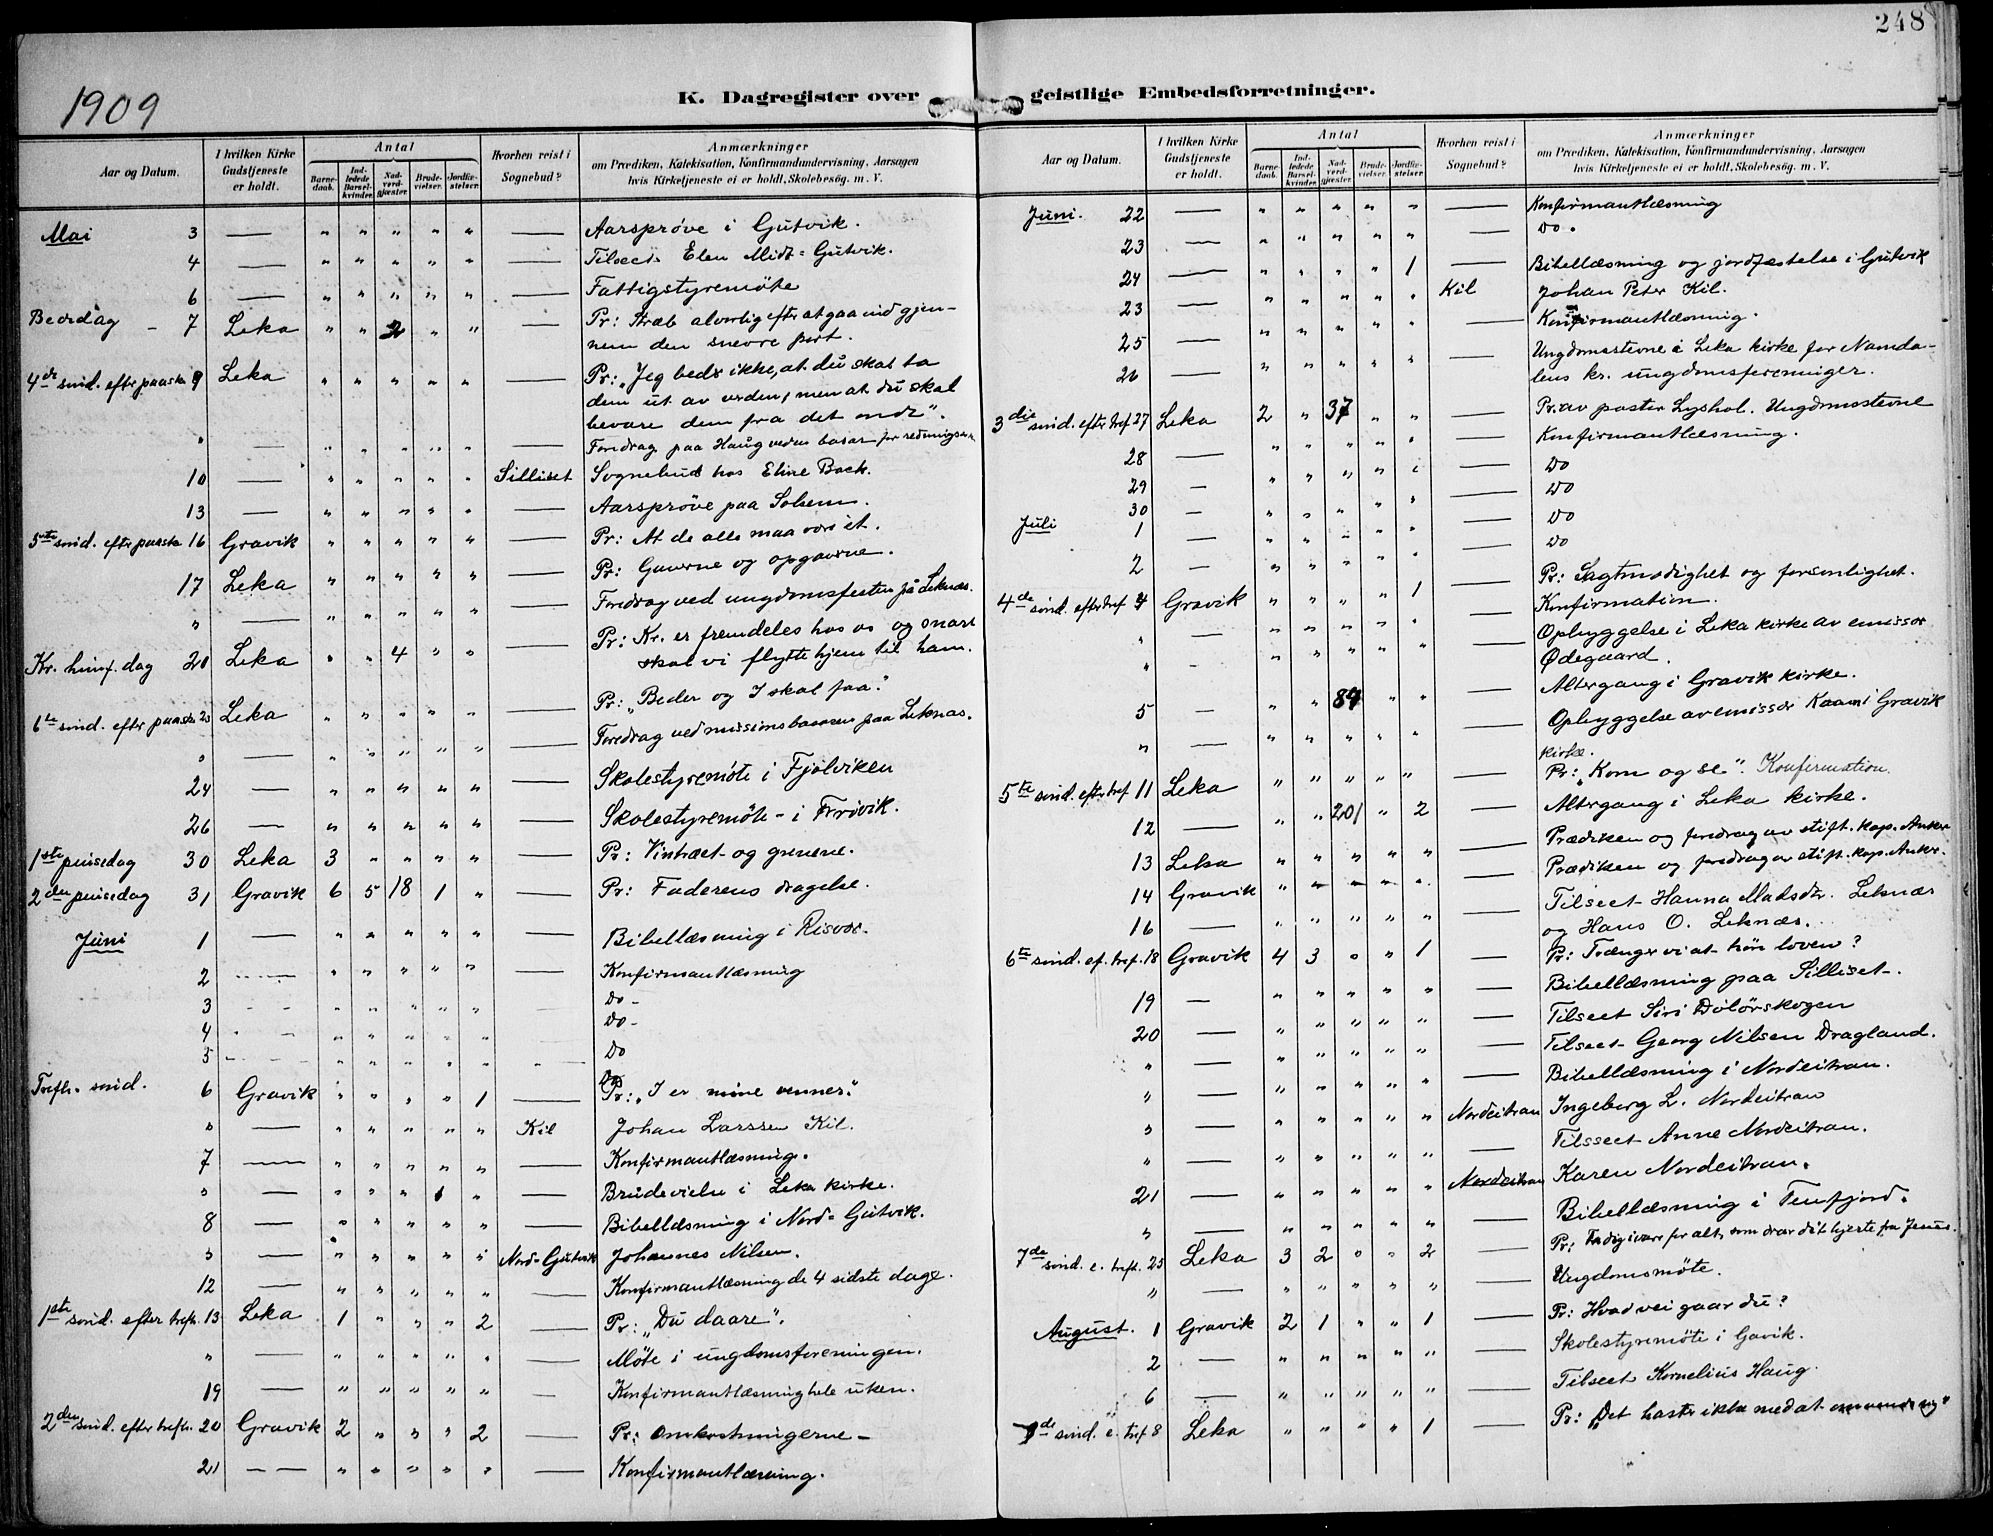 248
1909
K. Dagregister over geistlige Embedsforretninger.
Aar og Datum. | I hvilken Kirke Gudstjeneste er holdt. | Antal | Barnedaab. | Indledede Barselkvinder. | Nadverdgjæster. | Brudevielser. | Jordfæstelser. | Hvorhen reist i Sognebud? | Anmærkninger om Prædiken, Katekisation, Konfirmandundervisning, Aarsagen hvis Kirketjeneste ei er holdt, Skolebesøg. m. V.
Mai 3 — " " " " " — Aarsprøve i Gutvik.
4 — " " " " " — Tilseet Elen Midt-Gutvik.
6 — " " " " " — Fattigstyremöte
Bededag - 7 Leka " " 2 " " — Pr: Stræb alvorlig efter at gaa ind gjen-
nem den snevre port.
4de sönd. efter paaske 9 Leka " " " " " Pr: "Jeg beder ikke, at du skal ta
dem ut av verden, men at du skal
bevare dem fra det onde".
" " " " " " Foredrag paa Haug ved en basar for
10 — " " " " " Silliset Sognebud hos Eline Bach.
13 — " " " " " — Aarsprøve paa Solsem.
5te sönd. efter paaske 16 Gravik " " " " " — Pr: At de alle maa være ét.
17 Leka " " " " " — Pr: Gaverne og opgaverne.
" — " " " " " — Foredrag ved ungdomsfesten på Leknæs.
Kr. himf. dag 20 Leka " " 4 " " — Pr: Kr. er fremdeles hos os og snart
skal vi flytte hjem til ham.
6te sönd. efter paaske 23 Leka " " " " " — Pr: "Beder og I skal faa."
" — " " " " " — Foredrag ved missionsbasaren paa Leknæs.
24 — " " " " " — Skolestyremöte i Fjölviken
26 — " " " " " — Skolestyremöte - i
1ste pinsedag 30 Leka 3 " " " " — Pr: Vintræet og grenene.
2den pinsedag 31 Gravik 6 5 18 1 " — Pr: Faderens dragelse.
Juni 1 — " " " " " — Bibellæsning i Risvær.
2 — " " " " " — Konfirmantlæsning
3 — " " " " " — Do -
4 — " " " " " Do -
5 — " " " " " Do
Trefh. sönd. 6 Gravik " " " " 1 — Pr: "I er mine venner."
" — " " " " " Kil Johan Larssen Kil.
7 — " " " " " — Konfirmantlæsning.
" — " " " 1 " — Brudevielse i Leka kirke.
8 — " " " " " — Bibellæsning i Nord-Gutvik.
" — " " " " " Nord-Gutvik Johannes Nilsen.
12 — " " " " " Konfirmantlæsning de 4 sidste dage.
1ste sönd. efter trefh. 13 Leka 1 " " " 2 — Pr: "Du daare".
" — " " " " " — Møte i ungdomsforeningen.
19 — " " " " " — Konfirmantlæsning hele uken.
2den sönd. efter trefh. 20 Gravik 2 " " " 2 — Pr: Omkostningerne -
21 — " " " " " — Konfirmantlæsning.
Aar og Datum. | I hvilken Kirke Gudstjeneste er holdt. | Antal | Barnedaab. | Indledede Barselkvinder. | Nadverdgjæster. | Brudevielser. | Jordfæstelser. | Hvorhen reist i Sognebud? | Anmærkninger om Prædiken, Katekisation, Konfirmandundervisning, Aarsagen hvis Kirketjeneste ei er holdt, Skolebesøg. m. V.
Juni. 22 — " " " " " — Konfirmantlæsning
23 — " " " " " — Do.
24 — " " " " 1 — Bibellæsning og jordfæstelse i Gutvik
23 — " " " " " Kil Johan Peter Kil.
25 — " " " " " — Konfirmantlæsning.
26 " " " " " — Ungdomsstevne i Leka kirke for Namda-
lens kr. ungdomsforeninger.
3die sönd. efter tref. 27 Leka 2 " 37 " " — Pr. av pastor Lyshol. Ungdomsstevne
28 — " " " " " — Konfirmantlæsning.
29 — " " " " " — Do
30 — " " " " " — Do
Juli 1 — " " " " " — Do
2 — " " " " " — Do
4de sönd. efter tref. 4 Gravik " " " " 1 — Pr: Sagtmodighet og forsonlighet.
Konfirmation.
" — " " " " " — Opbyggelse i Leka kirke av emissær
Ödegaard.
5 — " " 84 " " — Altergang i Gravik kirke.
" — " " " " " — Opbyggelse av emissær Kaam i Gravik
kirke.
5te sönd. efter tref. 11 Leka " " " " " — Pr: "Kom og se". Konfirmation.
12 — " " 201 " 2 — Altergang i Leka kirke.
13 Leka " " " " " — Prædiken og foredrag av stift. kap. Anker
14 Gravik " " " " " — Prædiken og foredrag av stift. kap. Anker.
16 — " " " " " — Tilseet Hanna Madsdtr. Leknæs
og Hans O. Leknæs.
6te sönd. ef. tref. 18 Gravik 4 3 " " 1 — Pr: Trænger vi at höre loven?
19 — " " " " " — Bibellæsning paa Silliset.
20 — " " " " " — Tilseet Siri Dölörskogen
" — " " " " " — Tilseet Georg Nilsen Dragland.
" — " " " " " — Bibellæsning i Nordeitran.
" — " " " " " Nordeitran Ingeborg L. Nordeitran
" — " " " " " — Tilseet Anne Nordeitran.
21 — " " " " " Nordeitran Karen Nordeitran.
" — " " " " " — Bibellæsning i Tenfjord.
7de sönd. e. trefh. 25 Leka 3 2 " " 2 — Pr: Ta dig ivare for alt, som drar dit hjerte fra Jesus.
" — " " " " " — Ungdomsmöte.
August. 1 Gravik 2 1 " " 1 — Pr: Hvad vei gaar du?
2 — " " " " " — Skolestyremöte i Gavik.
6 — " " " " " — Tilseet Kornelius Haug.
de sönd. e. tref. 8 Leka " " " " 1 — Pr: "Det haster ikke med at omvende sig"